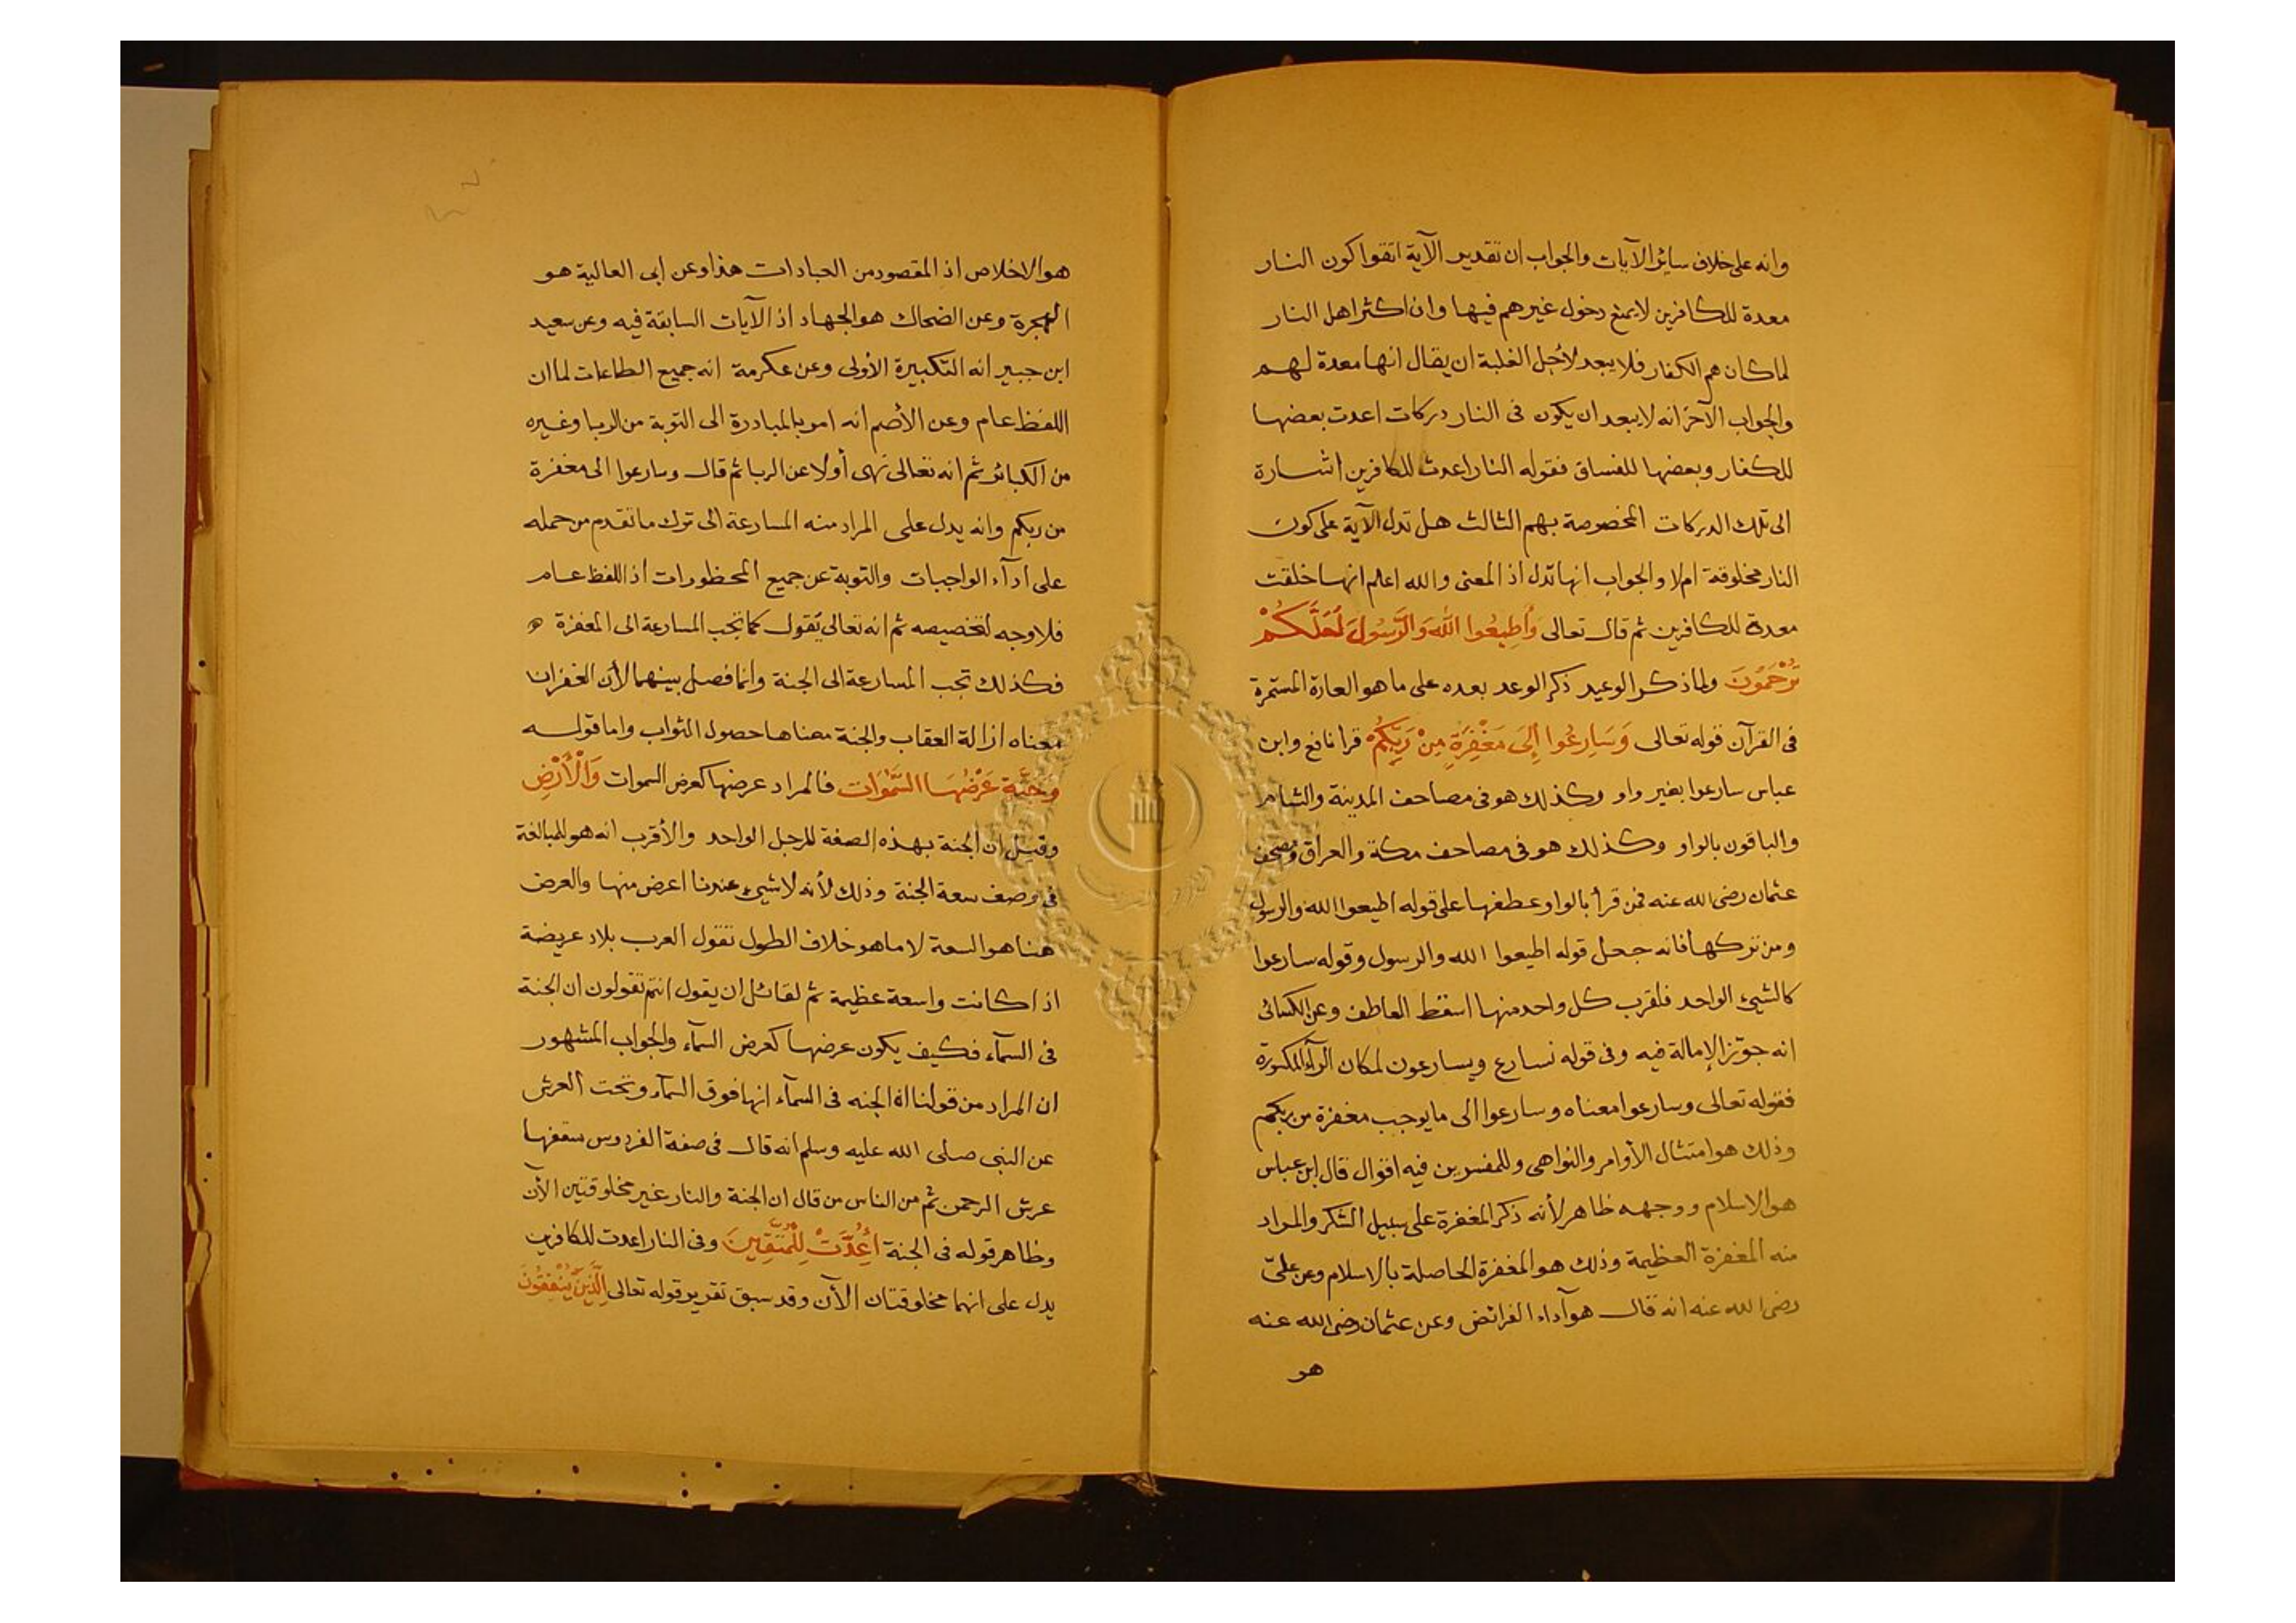 وانه على خلاف سائر الآيات والجواب ان تقدير الآية اتقوا كون النار
معدة للكافرين لا يمنع دخول غيرهم فيها وان اكثر اهل النار
لما كان هم الكفار فلا يبعد لأجل الغلبة ان يقال انها معدة لهم
والجواب الآخر انه لا يبعد ان يكون فى النار دركات اعدت بعضها
للكفار وبعضها للفساق فقوله النار اعدت للكافرين اشارة
الى تلك الدركات المخصوصة بهم الثالث هل تدل الآية على كون
النار مخلوقة ام لا والجواب انها تدل اذ المعنى والله اعلم انها خلقت
معدة للكافرين ثم قال تعالى وَأَطِيعُوا اللَّهَ وَالرَّسُولَ لَعَلَّكُمْ
تُرْحَمُونَ ولما ذكر الوعيد ذكر الوعد بعده على ما هو العادة المستمرة
فى القرآن قوله تعالى وَسَارِعُوا إِلَى مَغْفِرَةٍ مِنْ رَبِّكُمْ قرا نافع وابن
عباس سارعوا بغير واو وكذلك هو فى مصاحف المدينة والشام
والباقون بالواو وكذلك هو فى مصاحف مكة والعراق ومصحف
عثمان رضى الله عنه فمن قرأ بالواو عطفها على قوله اطيعوا الله والرسول
ومن تركها فانه جعل قوله اطيعوا الله والرسول وقوله سارعوا
كالشيئ الواحد فلقرب كل واحد منها اسقط العاطف وعن الكسائى
انه جوّز الإمالة فيه وفى قوله نسارع ويسارعون لمكان الرآء المكسورة
فقوله تعالى وسارعوا معناه وسارعوا الى ما يوجب مغفرة من ربكم
وذلك هو امتثال الأوامر والنواهى وللمفسرين فيه اقوال قال ابن عباس
هو الاسلام ووجهه ظاهر لأنه ذكر المغفرة على سبيل الشكر والمراد
منه المغفرة العظيمة وذلك هو المغفرة الحاصلة بالاسلام وعن علىّ
رضى الله عنه انه قال هو آداء الفرائض وعن عثمان رضى الله عنه
هو
هو الاخلاص اذ المقصود من العبادات هذا وعن ابى العالية هو
الهجرة وعن الضحاك هو الجهاد اذ الآيات السابقة فيه وعن سعيد
ابن جبير انه التكبيرة الأولى وعن عكرمة انه جميع الطاعات لما ان
اللفظ عام وعن الأصم انه امر بالمبادرة الى التوبة من الربا وغيره
من الكبائر ثم انه تعالى نهى أولا عن الربا ثم قال وسارعوا الى مغفرة
من ربكم وانه يدل على المراد منه المسارعة الى ترك ما تقدم من حمله
على أدآء الواجبات والتوبة عن جميع المحظورات أذ اللفظ عام
فلا وجه لتخصيصه ثم انه تعالى يقول كما تجب المسارعة الى المغفرة
فكذلك تجب المسارعة الى الجنة وانما فصل بينهما لأن الغفران
معناه ازالة العقاب والجنة معناها حصول الثواب واما قوله
وَجَنَّةٍ عَرْضُهَا السَّمَوَات فالمراد عرضها كعرض السموات وَالْأَرْضِ
وقيل ان الجنة بهذه الصفة للرجل الواحد والأقرب انه هو للمبالغة
فى وصف سعة الجنة وذلك لأنه لا شيئ عندنا اعرض منها والعرض
هنا هو السعة لا ما هو خلاف الطول تقول العرب بلاد عريضة
اذا كانت واسعة عظيمة ثم لقائل ان يقول انتم تقولون ان الجنة
فى السمآء فكيف يكون عرضها كعرض السمآء والجواب المشهور
ان المراد من قولنا ان الجنه فى السمآء انها فوق السمآء وتحت العرش
عن النبى صلى الله عليه وسلم انه قال فى صفة الفردوس سقفها
عرش الرحمن ثم من الناس من قال ان الجنة والنار غير مخلوقتين الآن
وظاهر قوله فى الجنة أُعِدَّتْ لِلْمُتَّقِينَ وفى النار اعدت للكافرين
يدل على انهما مخلوقتان الآن وقد سبق تقرير قوله تعالى الَّذِينَ يُنْفِقُونَ